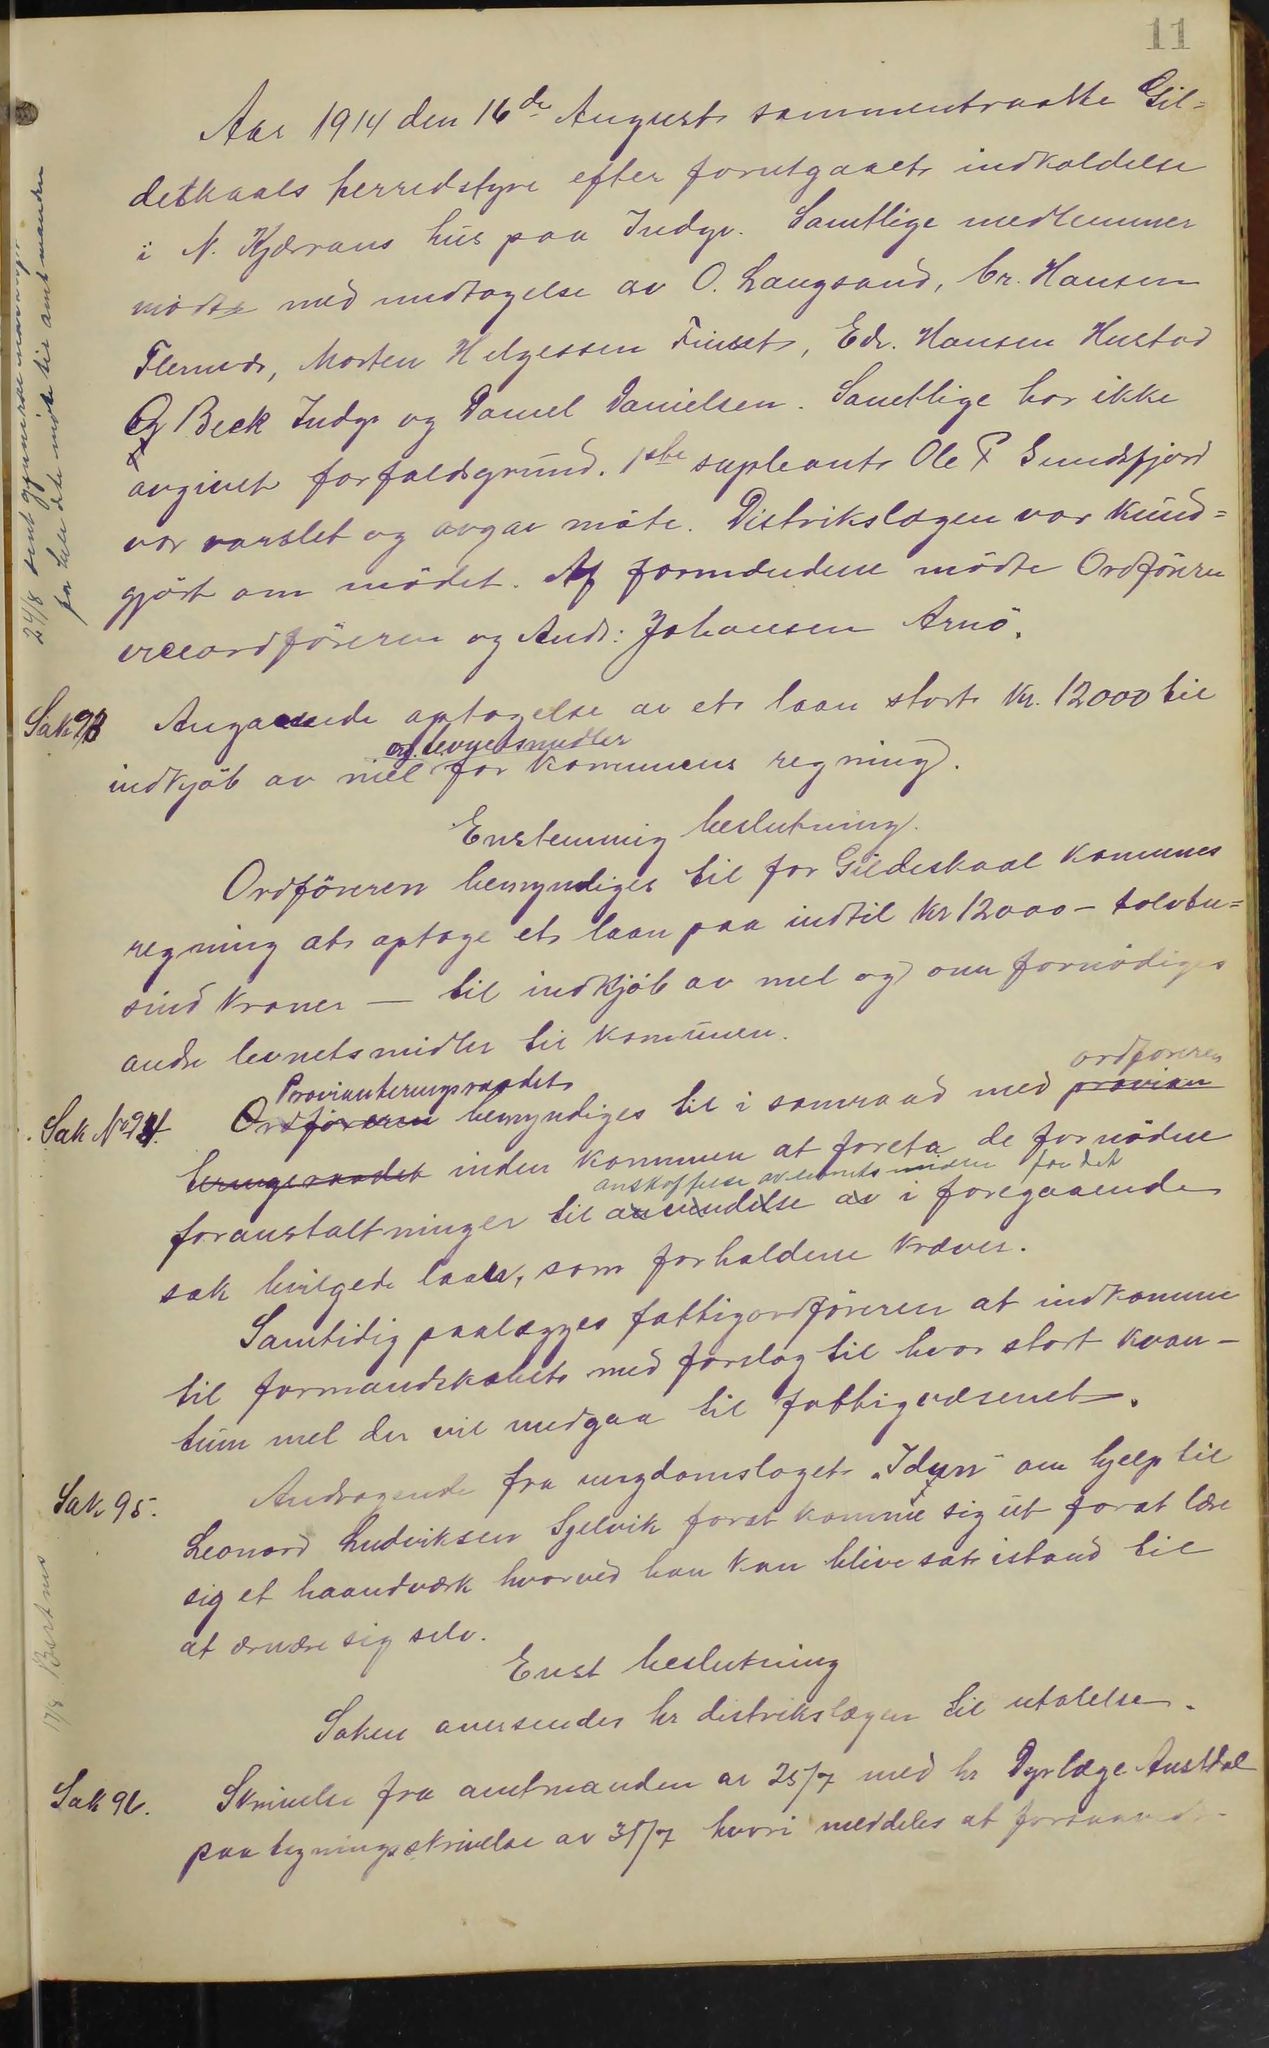 11
Aar 1914 den 16de August sammentraatte Gil=
deskaals herredstyre efter forutgaaet indkaldelse
i N. Kjærrans hus paa Indyr. Samtlige medlemmer
mødte med undtagelse av O. Langsand, Chr. Hansen
Flernes, Morten Helgessen Finset, Edv. Hansen Hustad
Og Beck Indyr og Daniel Danielsen. Samtlige har ikke
avgivet forfaldsgrund. 1ste supleant Ole P Sundsfjord
var varslet og avgav møte. Distrikslægen var kund=
gjört om mödet. Af formændene mödte Ordföreren
viceordföreren og Andr: Johansen Arnö.
Sak 93 Angaaende optagelse av et laan stort Kr. 12000 til
og levnetsmidler
indkjöb av mel for kommunens regning.
Enstemmig beslutning.
Ordföreren bemyndiges til for Gildeskaal kommunes
regning at optage et laan paa indtil Kr 12000 - tolvtu=
sind kroner — til indkjöb av mel og om fornödiges
andre levnetsmidler til kommunen.
Provianteringsraadet ordföreren
Sak No 94. Ordföreren bemyndiges til i samraad med provian
teringsraadet inden kommunen at foreta de fornödne
anskaffelse av levnetsmidler for det
foranstaltninger til anvendelse av i foregaaende
sak bevilgede laan, som forholdene kræver.
Samtidig paalægges fattigordföreren at indkomme
til formandskabet med forslag til hvor stort kvan-
tum mel der vil medgaa til fattigvæsenet.
Sak 95. Andragende fra ungdomslaget "Idun" om hjelp til
Leonard Ludviksen Sjelvik forat komme sig ut forat lære
sig et haandværk hvorved han kan blive sat istand til
at ernære sig selv.
Enst beslutning
Saken oversendes hr distrikslægen til utalelse.
Sak 96. Skrivelse fra amtmanden av 25/7 med hr Dyrlæge Austdal
paategningsskrivelse av 31/7 hvori meddeles at
24/8 sent
for det møte til amtmanden
17/8